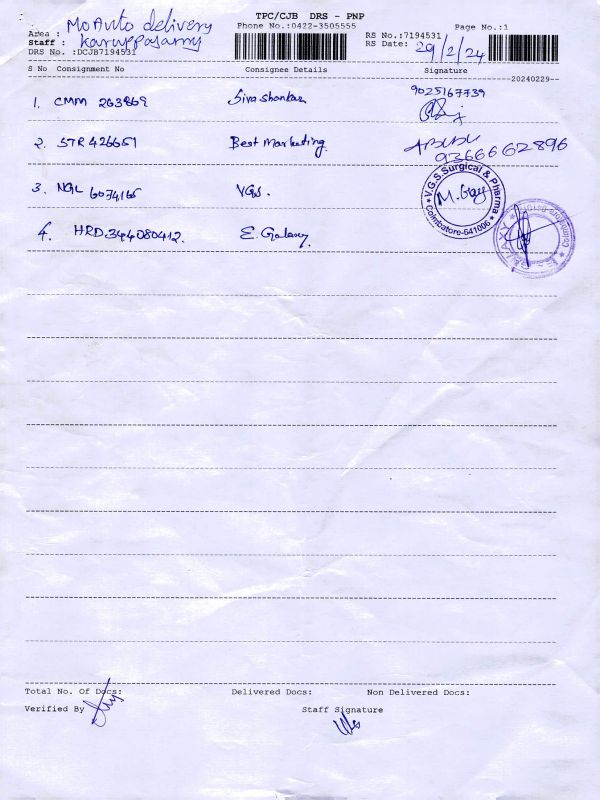 TPC/CJB DRS - PNP
Phone No.:0422-3505555
Page No.:1
Area : MoAuto delivery
Staff : Karuppasamy
DRS No. :DCJB7194531
RS No.:7194531
RS Date: 29/2/24
S No Consignment No Consignee Details Signature
20240229
1. CMM 263869 Sivashankar 9025167739
2. STR 426651 Best Marketing
9366662896
3. NGL 6074165 VGS.
V.G.S. Surgical & Pharma
Coimbatore-641006
4. HRD344080412. E. Galaxy
Total No. Of Docs: Delivered Docs: Non Delivered Docs:
Verified By Staff Signature